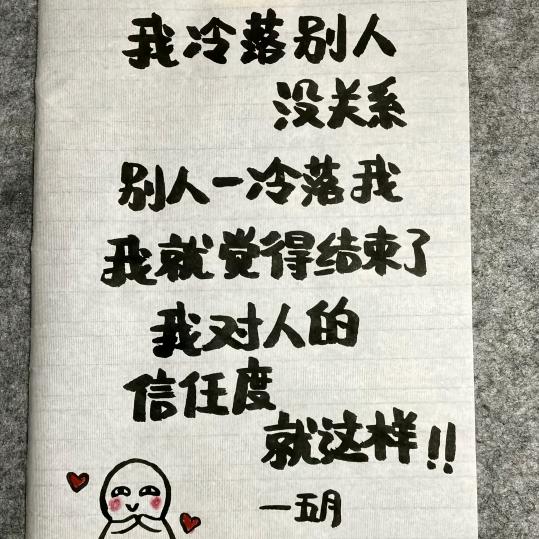 我冷落别人
没关系
别人一冷落我
我就觉得结束了
我对人的
信任度
就这样!!
一五月